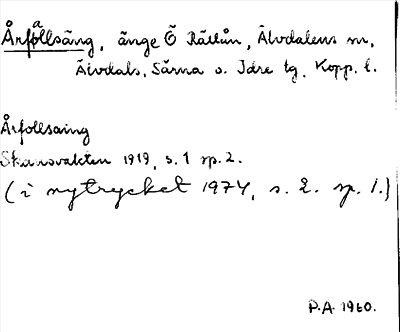 Årfållsäng, änge Ö Rällån, Älvdalens sn,
Älvdals, Särna o. Idre tg, Kopp. l.
Årfollsäing
Skansvakten 1919, s. 1 sp. 2.
(i nytrycket 1974, s. 2. sp. 1.)
P.A. 1960.